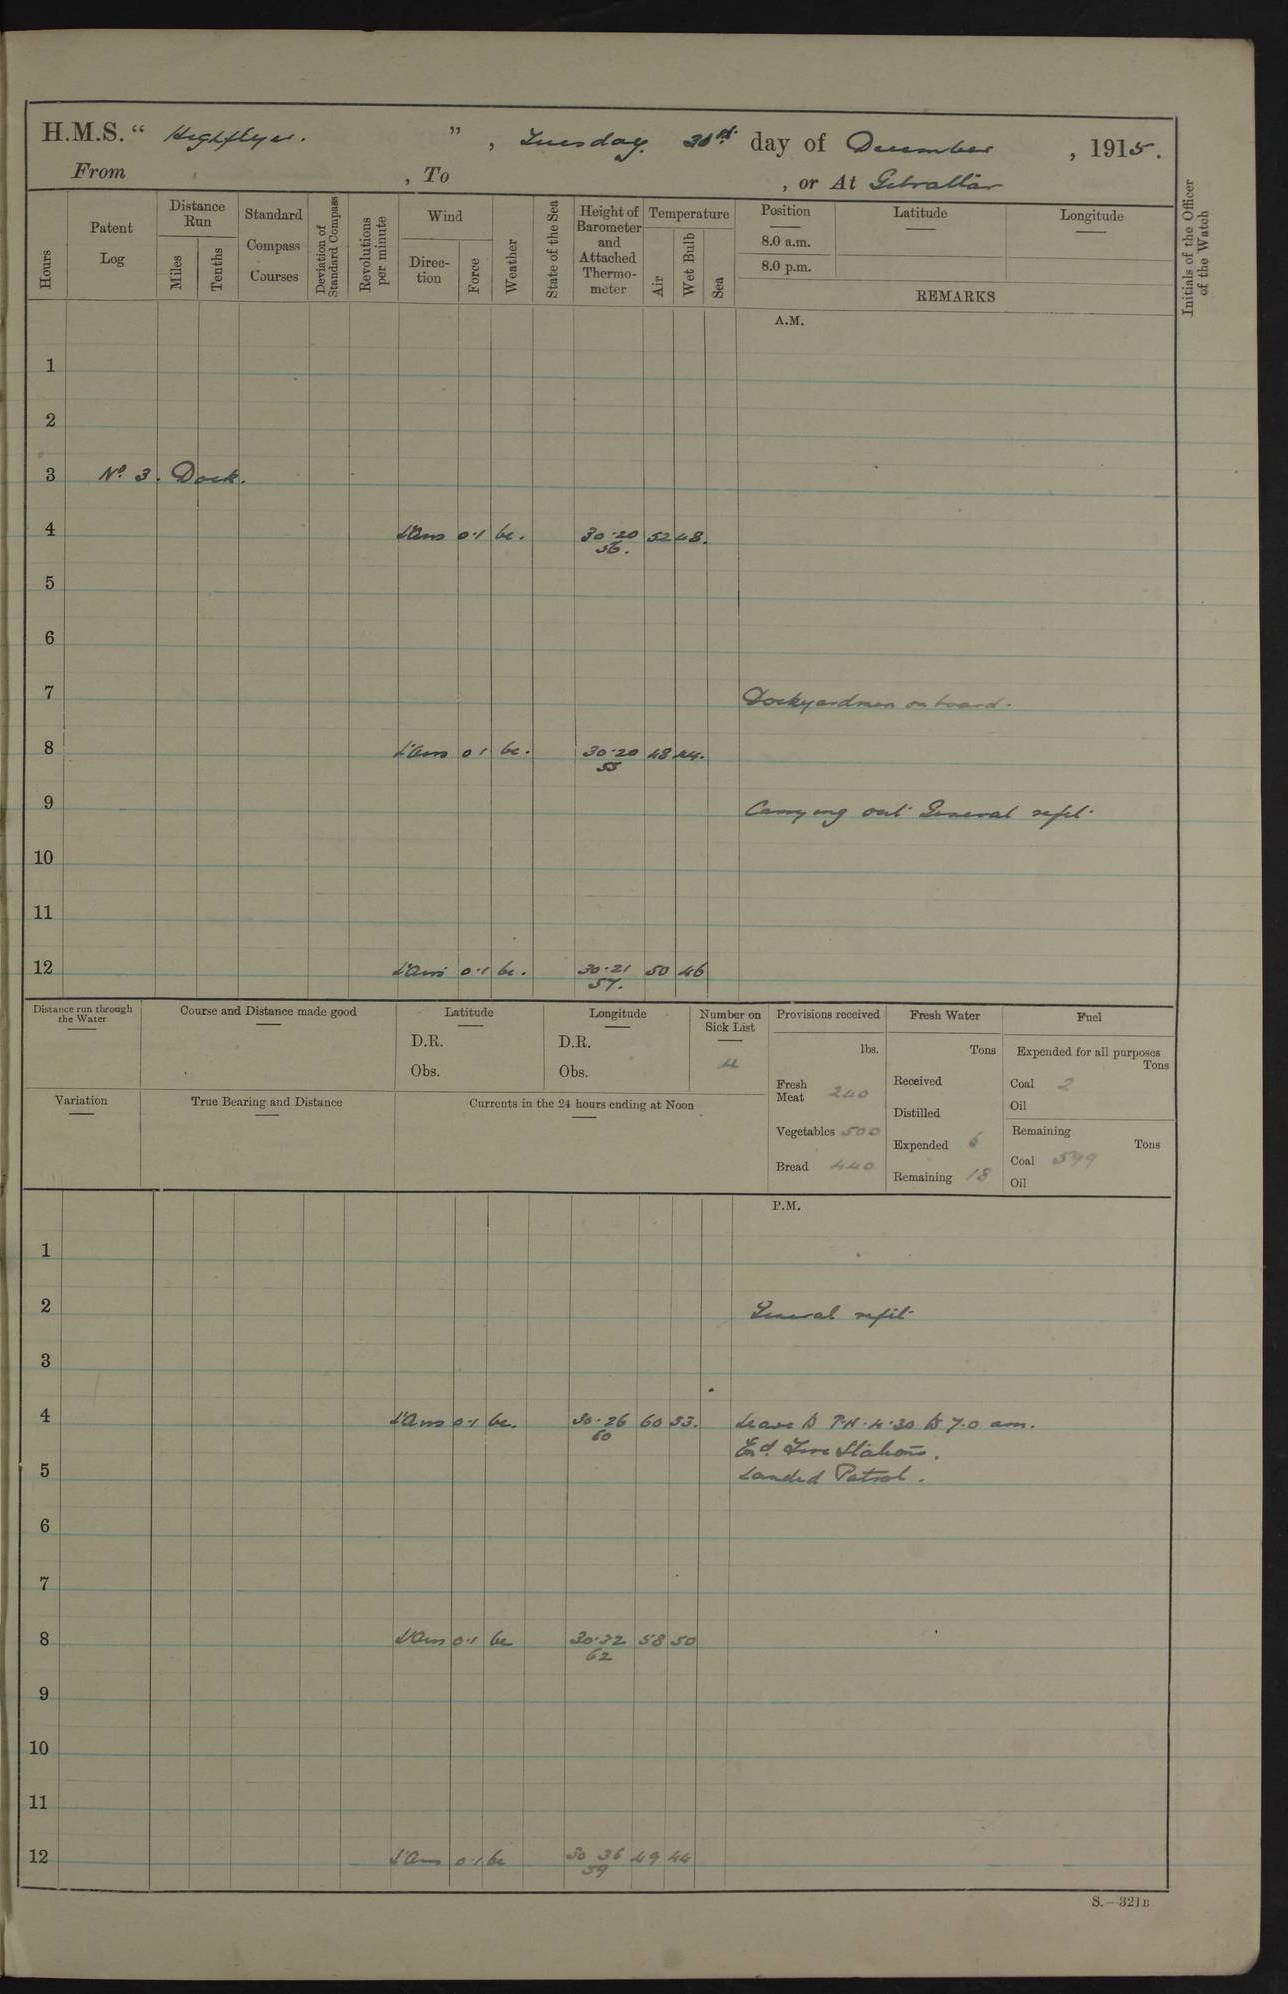 H.M.S. “ Highflyer. ”, Tuesday 30th day of December, 1915.
From , To , or At Gibraltar
Hours
Patent Log
Distance Run
Miles
Tenths
Standard Compass Courses
Deviation of Standard Compass
Revolutions per minute
Wind
Direction
Force
Weather
State of the Sea
Height of Barometer and Attached Thermometer
Temperature
Air
Wet Bulb
Sea
Position
8.0 a.m.
8.0 p.m.
Latitude
Longitude
REMARKS
Initials of the Officer of the Watch
A.M.
1
2
3 No. 3. Dock.
4 L'Airs 0·1 bc. 30·20 52 48.
56.
5
6
7 Dockyardmen on board.
8 L'Airs 0 1 bc. 30·20 48 44.
55
9 Carrying out General refit.
10
11
12 L'Airs 0·1 bc. 30·21 50 46
57.
Distance run through the Water
Course and Distance made good
Latitude
D.R.
Obs.
Longitude
D.R.
Obs.
Number on Sick List
4
Provisions received
lbs.
Fresh Meat 240
Vegetables 500
Bread 440
Fresh Water
Tons
Received
Distilled
Expended 6
Remaining 18
Fuel
Expended for all purposes
Tons
Coal 2
Oil
Remaining
Tons
Coal 599
Oil
Variation
True Bearing and Distance
Currents in the 24 hours ending at Noon
P.M.
1
2 General refit
3
4 L'Airs 0·1 bc. 30·26 60 53. Leave to P.W. 4·30 to 7.0 am.
60
Exd. Fire Stations.
5 Landed Patrol.
6
7
8 L'Airs 0·1 bc 30·32 58 50
62
9
10
11
12 L'Airs 0·1 bc 30 36 49 44
59
S.—321B